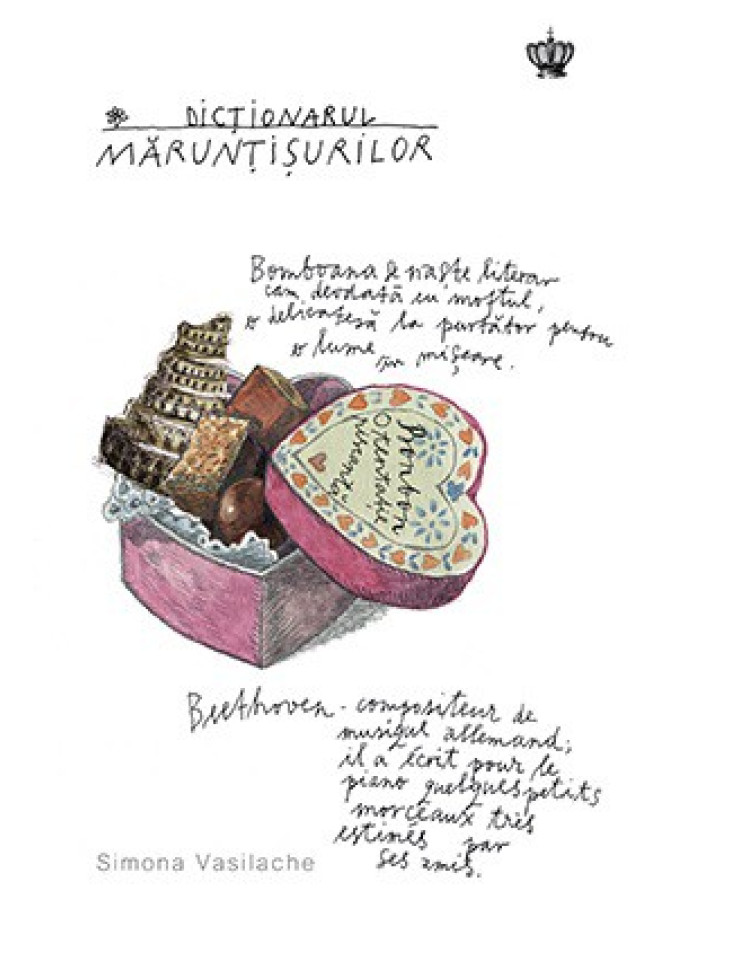 DICȚIONARUL
MĂRUNȚIȘURILOR
Bomboana se naște literar
cam deodată cu moftul,
o delicatesă la purtător pentru
o lume în mișcare.
Bonbon
Orientație
Beethoven - compositeur de
musique allemand;
il a écrit pour le
piano quelques petits
morceaux très
estimés par
ses amis.
Simona Vasilache